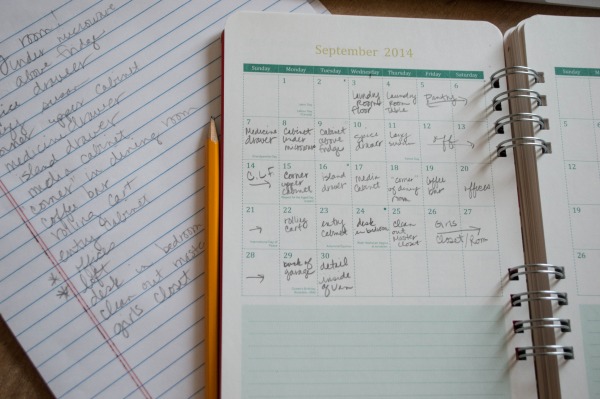 room!
Under microwave
above fridge
drawer
upper cabinet
medicine drawer
island drawer
media cabinet
"corner" in dining room
coffee bar
rolling cart
entry cabinet
* offices
* loft
desk in bedroom
clean out
girls closet
September 2014
Sunday Monday Tuesday Wednesday Thursday Friday Saturday
1 2 3 4 5 6
Laundry Room Floor
Laundry Room Table
Pantry
7 8 9 10 11 12 13
Medicine drawer
Cabinet Under microwave
Cabinet above fridge
spice drawer
off
14 15 16 17 18 19 20
Corner upper cabinet
island drawer
Media Cabinet
"corner" of dining room
coffee bar
offices
21 22 23 24 25 26 27
rolling cart
entry cabinet
desk in bedroom
clean out Master Closet
Girls Closet/Room
28 29 30
back of garage
detail inside of van
Sunday
5
12
19
26